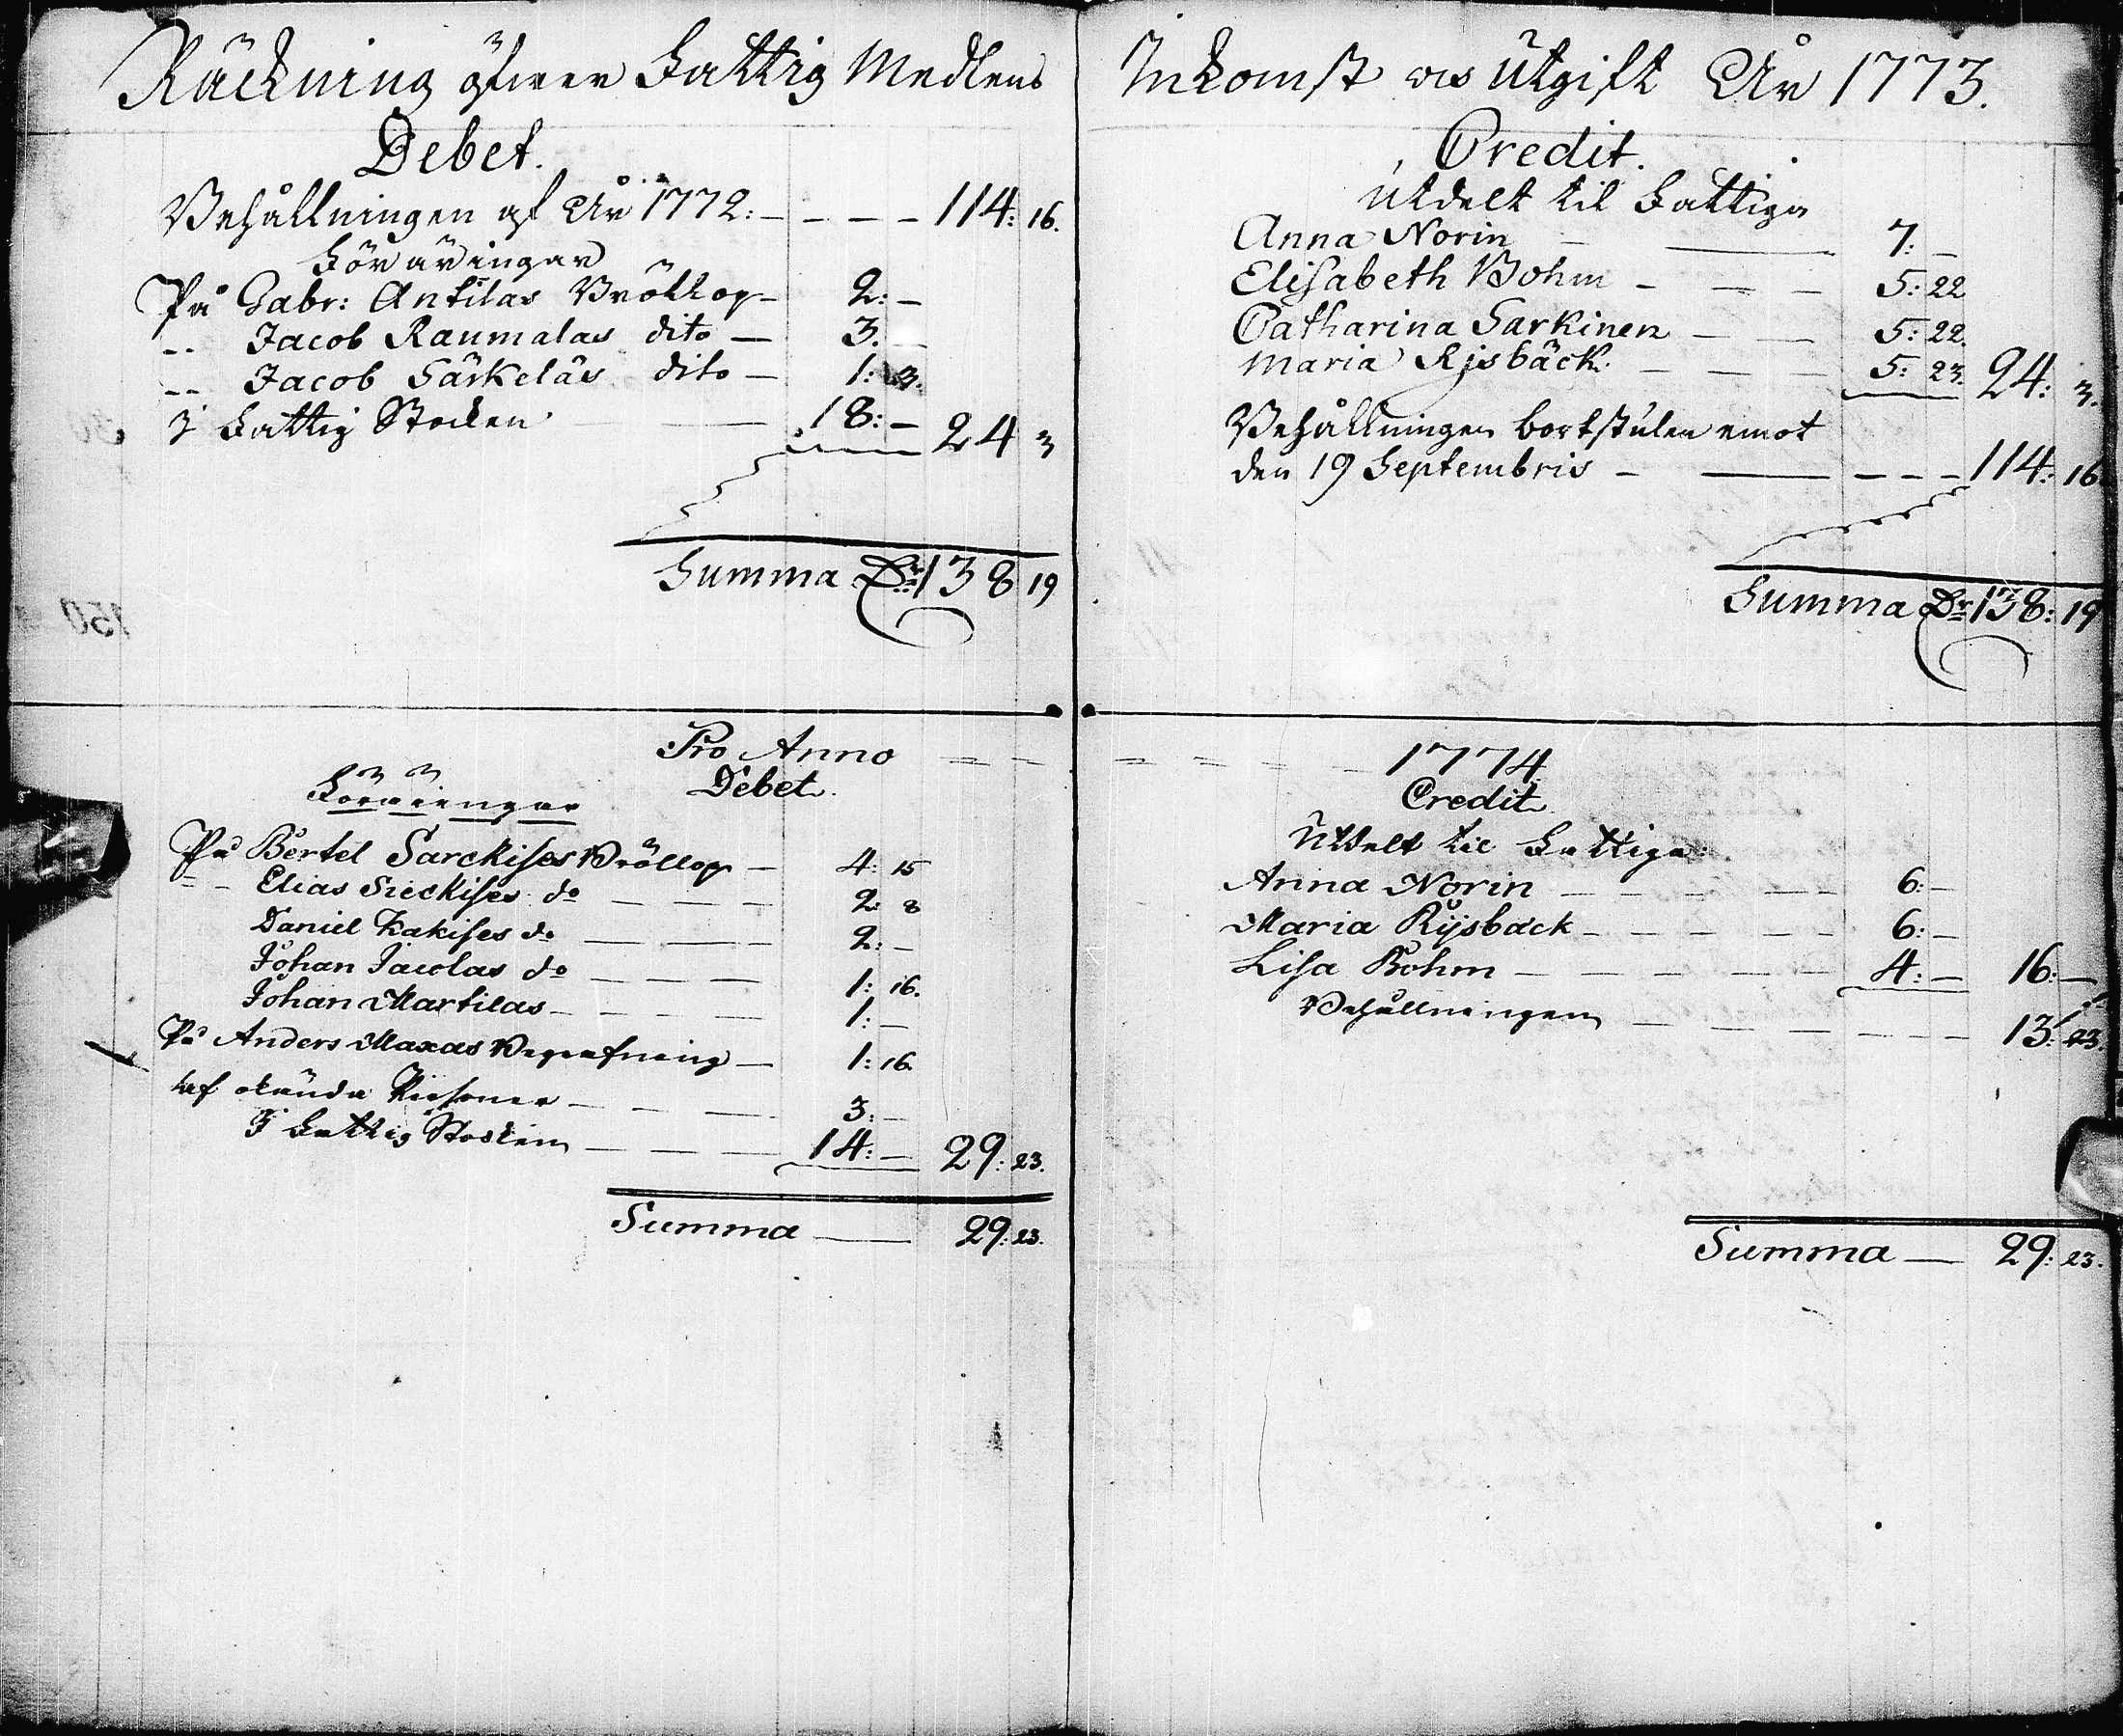 Räckning öfwer Fattig Medlens
Debet.
Behållningen af År 1772: - - - - 114: 16.
Föräringar
På Gabr: Antilas Bröllop - 2: -
" Jacob Raumalas dito - 3. -
" Jacob Särkeläs dito - 1: 3.
I Fattig Stocken - 18: - 24 3
Summa Dr 138 19
Inkomst och Utgift År 1773.
Credit.
Utdelt til Fattiga
Anna Norin - 7: -
Elisabeth Bohm - - - 5: 22
Catharina Sarkinen - - 5: 22.
Maria Rjsbäck - - - 5: 23. 24: 3.
Behållningen bortstulen emot
den 19 Septembris - - - - - 114: 16
Summa Dr 138: 19
Pro Anno - - - - - - - 1774
Debet.
Föräringar
På Bertel Sarckises Bröllop - 4: 15
" - Elias Sieckises do - - - 2: 8
Daniel Kakises do - - - 2: -
Johan Jacolas do - - - 1: 16.
Johan Martilas - - - - 1: -
På Anders Maxas Begrafning - 1: 16.
af okända Personer - - - - 3: -
I Fattig Stocken - - - - 14: - 29: 23.
Summa - 29: 23.
Credit
Utdelt til Fattiga
Anna Norin - - - - - 6: -
Maria Rijsback - - - - - 6: -
Lisa Bohm - - - - - 4: - 16: -
Behållningen - - - - - - - 13: 23.
Summa - 29: 23.